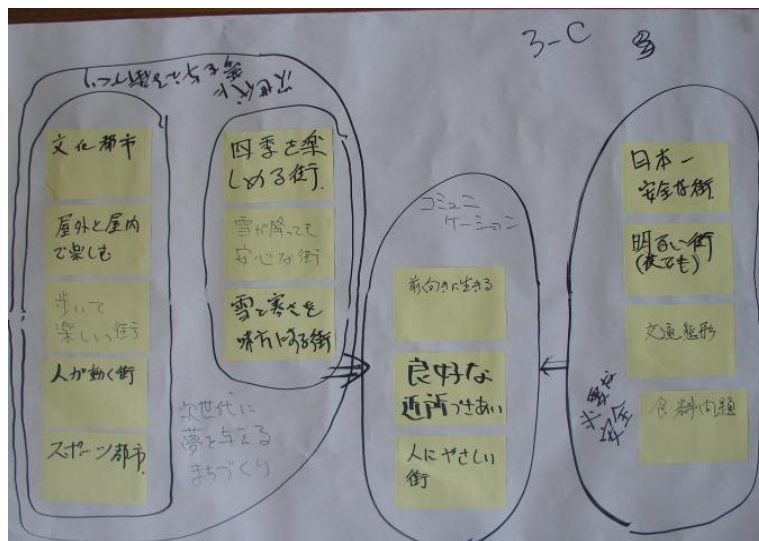 3-C
次世代に
夢を与える
文化都市
屋外と屋内
で楽しむ
歩いて
楽しい街
人が動く街
スポーツ都市
四季を楽
しめる街
雪が降っても
安心な街
雪と寒さを
味方にする街
次世代に
夢を与える
まちづくり
コミュニ
ケーション
前向きに生きる
良好な
近所づきあい
人にやさしい
街
日本一
安全な街
明るい街
(夜でも)
交通態形
食料問題
安全